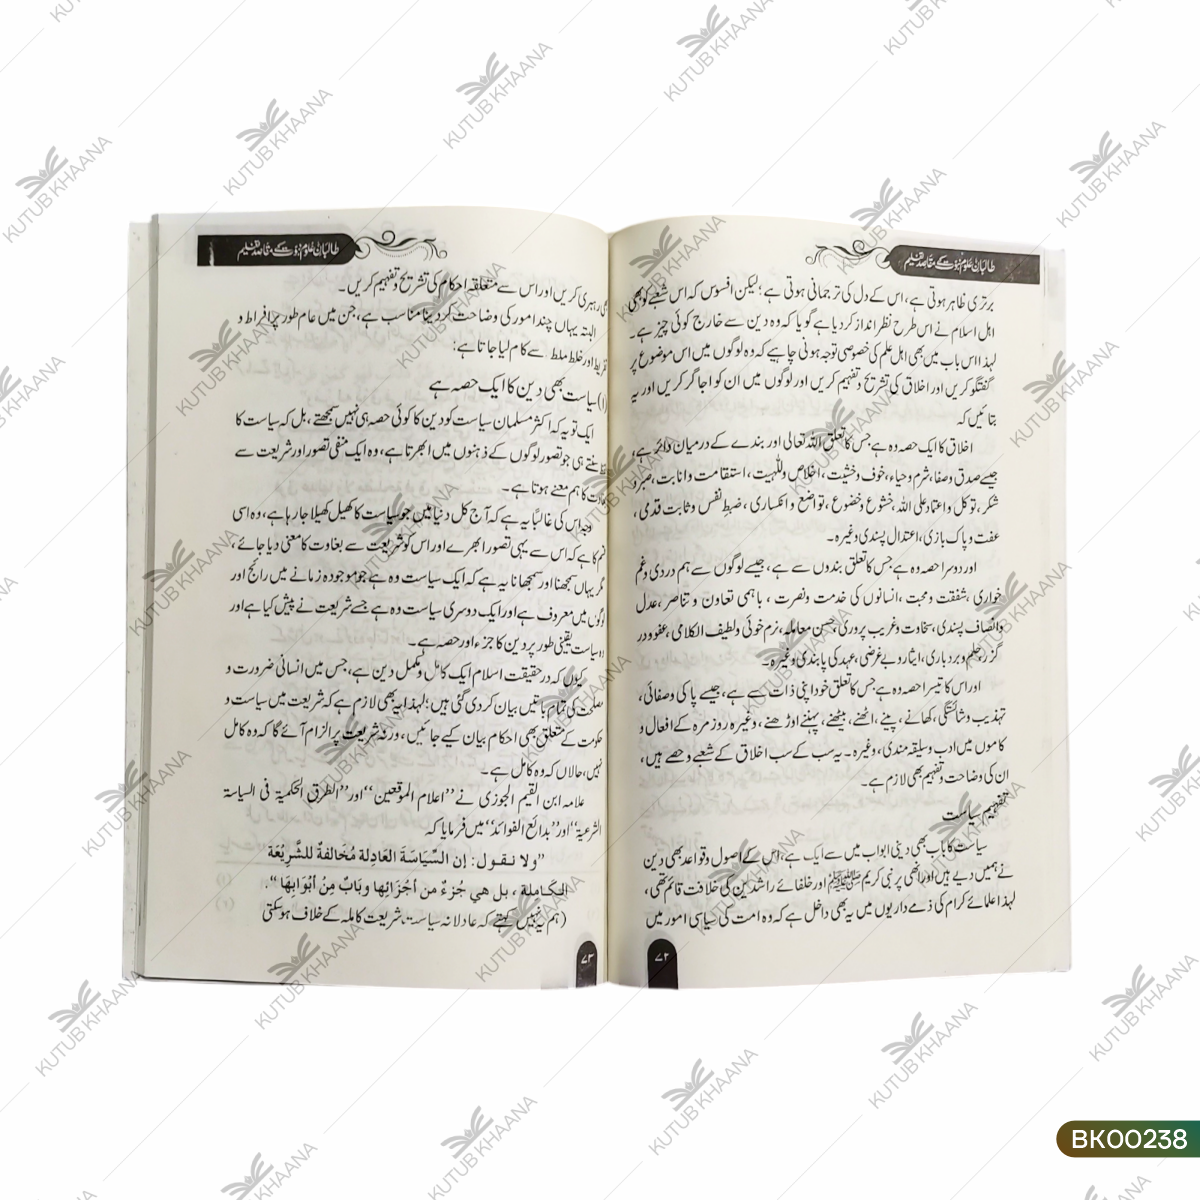 طالبان علوم نبوت کے مقاصد تعلیم
برتری ظاہر ہوتی ہے، اس کے دل کی ترجمانی ہوتی ہے؛ لیکن افسوس کہ اس شعبے کو بھی
اہل اسلام نے اس طرح نظر انداز کر دیا ہے گویا کہ وہ دین سے خارج کوئی چیز ہے۔
لہذا اس باب میں بھی اہل علم کی خصوصی توجہ ہونی چاہیے کہ وہ لوگوں میں اس موضوع پر
گفتگو کریں اور اخلاق کی تشریح و تفہیم کریں اور لوگوں میں ان کو اجاگر کریں اور یہ
بتائیں کہ
اخلاق کا ایک حصہ وہ ہے جس کا تعلق اللہ تعالی اور بندے کے درمیان دائر ہے،
جیسے صدق و صفا، شرم و حیاء، خوف و خشیت، اخلاص و للّٰہیت، استقامت و انابت، صبر و
شکر، توکل و اعتماد علی اللہ، خشوع و خضوع، تواضع و انکساری، ضبط نفس و ثابت قدمی،
عفت و پاک بازی، اعتدال پسندی وغیرہ۔
اور دوسرا حصہ وہ ہے جس کا تعلق بندوں سے ہے، جیسے لوگوں سے ہم دردی و غم
خواری، شفقت و محبت، انسانوں کی خدمت و نصرت، باہمی تعاون و تناصر، عدل
وانصاف پسندی، سخاوت و غریب پروری، حسن معاملہ، نرم خوئی و لطیف الکلامی، عفو و در
گزر، حلم و بردباری، ایثار و بے غرضی، عہد کی پابندی وغیرہ۔
اور اس کا تیسرا حصہ وہ ہے جس کا تعلق خود اپنی ذات سے ہے، جیسے پاکی و صفائی،
تہذیب و شائستگی، کھانے، پینے، اٹھنے، بیٹھنے، پہننے اوڑھنے، وغیرہ روز مرہ کے افعال و
کاموں میں ادب و سلیقہ مندی، وغیرہ۔ یہ سب کے سب اخلاق کے شعبے و حصے ہیں،
ان کی وضاحت و تفہیم بھی لازم ہے۔
تفہیم سیاست
سیاست کا باب بھی دینی ابواب میں سے ایک ہے، اس کے اصول و قواعد بھی دین
نے ہمیں دیے ہیں اور انھی پر نبی کریم ﷺ اور خلفائے راشدین کی خلافت قائم تھی،
لہذا علمائے کرام کی ذمے داریوں میں یہ بھی داخل ہے کہ وہ امت کی سیاسی امور میں
۷۲
طالبان علوم نبوت کے مقاصد تعلیم
بھی رہبری کریں اور اس سے متعلقہ احکام کی تشریح و تفہیم کریں۔
البتہ یہاں چند امور کی وضاحت کر دینا مناسب ہے، جن میں عام طور پر افراط و
تفریط اور خلط ملط سے کام لیا جاتا ہے:
(۱) سیاست بھی دین کا ایک حصہ ہے
ایک تو یہ کہ اکثر مسلمان سیاست کو دین کا کوئی حصہ ہی نہیں سمجھتے، بل کہ سیاست کا
لفظ سنتے ہی جو تصور لوگوں کے ذہنوں میں ابھرتا ہے، وہ ایک منفی تصور اور شریعت سے
بغاوت کا ہم معنے ہوتا ہے۔
وجہ اس کی غالباً یہ ہے کہ آج کل دنیا میں جو سیاست کا کھیل کھیلا جا رہا ہے، وہ اسی
قسم کا ہے کہ اس سے یہی تصور ابھرے اور اس کو شریعت سے بغاوت کا معنی دیا جائے،
مگر یہاں سمجھنا اور سمجھانا یہ ہے کہ ایک سیاست وہ ہے جو موجودہ زمانے میں رائج اور
لوگوں میں معروف ہے اور ایک دوسری سیاست وہ ہے جسے شریعت نے پیش کیا ہے اور
وہ سیاست یقینی طور پر دین کا جزء اور حصہ ہے۔
کیوں کہ در حقیقت اسلام ایک کامل و مکمل دین ہے، جس میں انسانی ضرورت و
مصلحت کی تمام باتیں بیان کر دی گئی ہیں؛ لہذا یہ بھی لازم ہے کہ شریعت میں سیاست و
حکومت کے متعلق بھی احکام بیان کیے جائیں، ورنہ شریعت پر الزام آئے گا کہ وہ کامل
نہیں، حالاں کہ وہ کامل ہے۔
علامہ ابن القیم الجوزی نے ’’اعلام الموقعین‘‘ اور ’’الطرق الحکمیۃ فی السیاسۃ
الشرعیۃ‘‘ اور ’’بدائع الفوائد‘‘ میں فرمایا کہ
”ولا نقول: إن السِّيَاسَةَ العَادِلة مُخَالفةٌ للشَّرِيْعَة
الكَامِلة، بل هي جُزءٌ من أجْزَائِها وبَابٌ مِنْ أبْوَابِهَا“.
(ہم یہ نہیں کہتے کہ عادلانہ سیاست، شریعت کاملہ کے خلاف ہوسکتی
۷۳
KUTUB KHAANA
BK00238